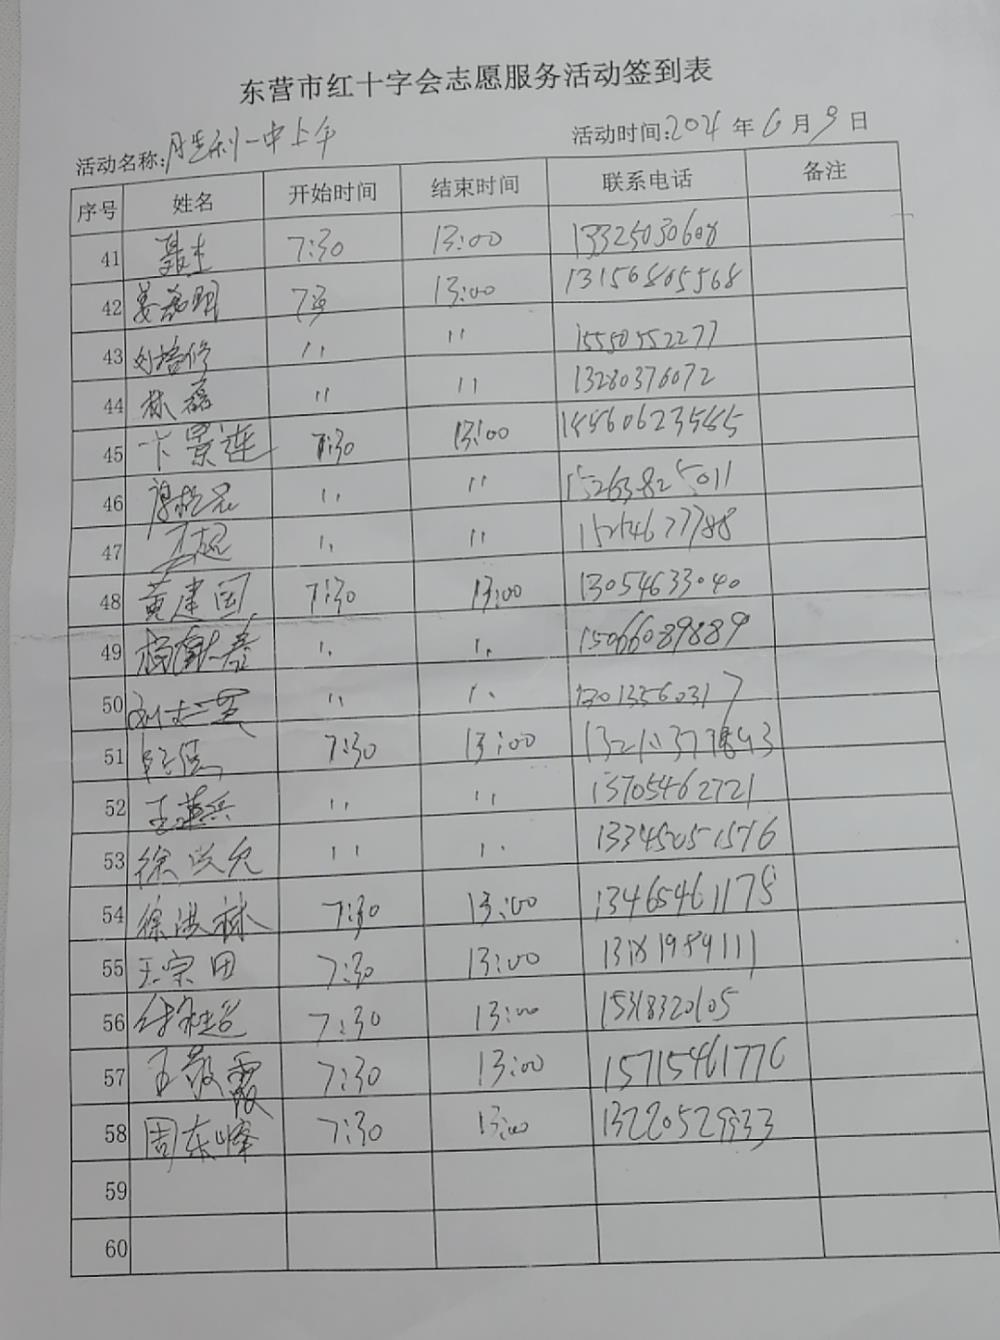 东营市红十字会志愿服务活动签到表
活动名称:胜利一中上午 活动时间:2024年6月9日
序号 姓名 开始时间 结束时间 联系电话 备注
41 聂杰 7:30 13:00 13325030608
42 姜 明 7:30 13:00 13156805568
43 刘培修 〃 〃 15550552277
44 林磊 〃 〃 13280376072
45 卞景连 7:30 13:00
46 〃 〃 15263825011
47 王超 〃 〃 15254677788
48 黄建国 7:30 13:00 13054633040
49 杨 春 〃 〃 15066089889
50 刘 军 〃 〃 13013560317
51 7:30 13:00
52 王 兵 〃 〃 15705462721
53 徐 允 〃 〃 13345051576
54 徐洪林 7:30 13:00 13465461178
55 王宗田 7:30 13:00 13181989111
56 7:30 13:00 15318320105
57 王敬霞 7:30 13:00 15715461776
58 周东峰 7:30 13:00 13220529933
59
60